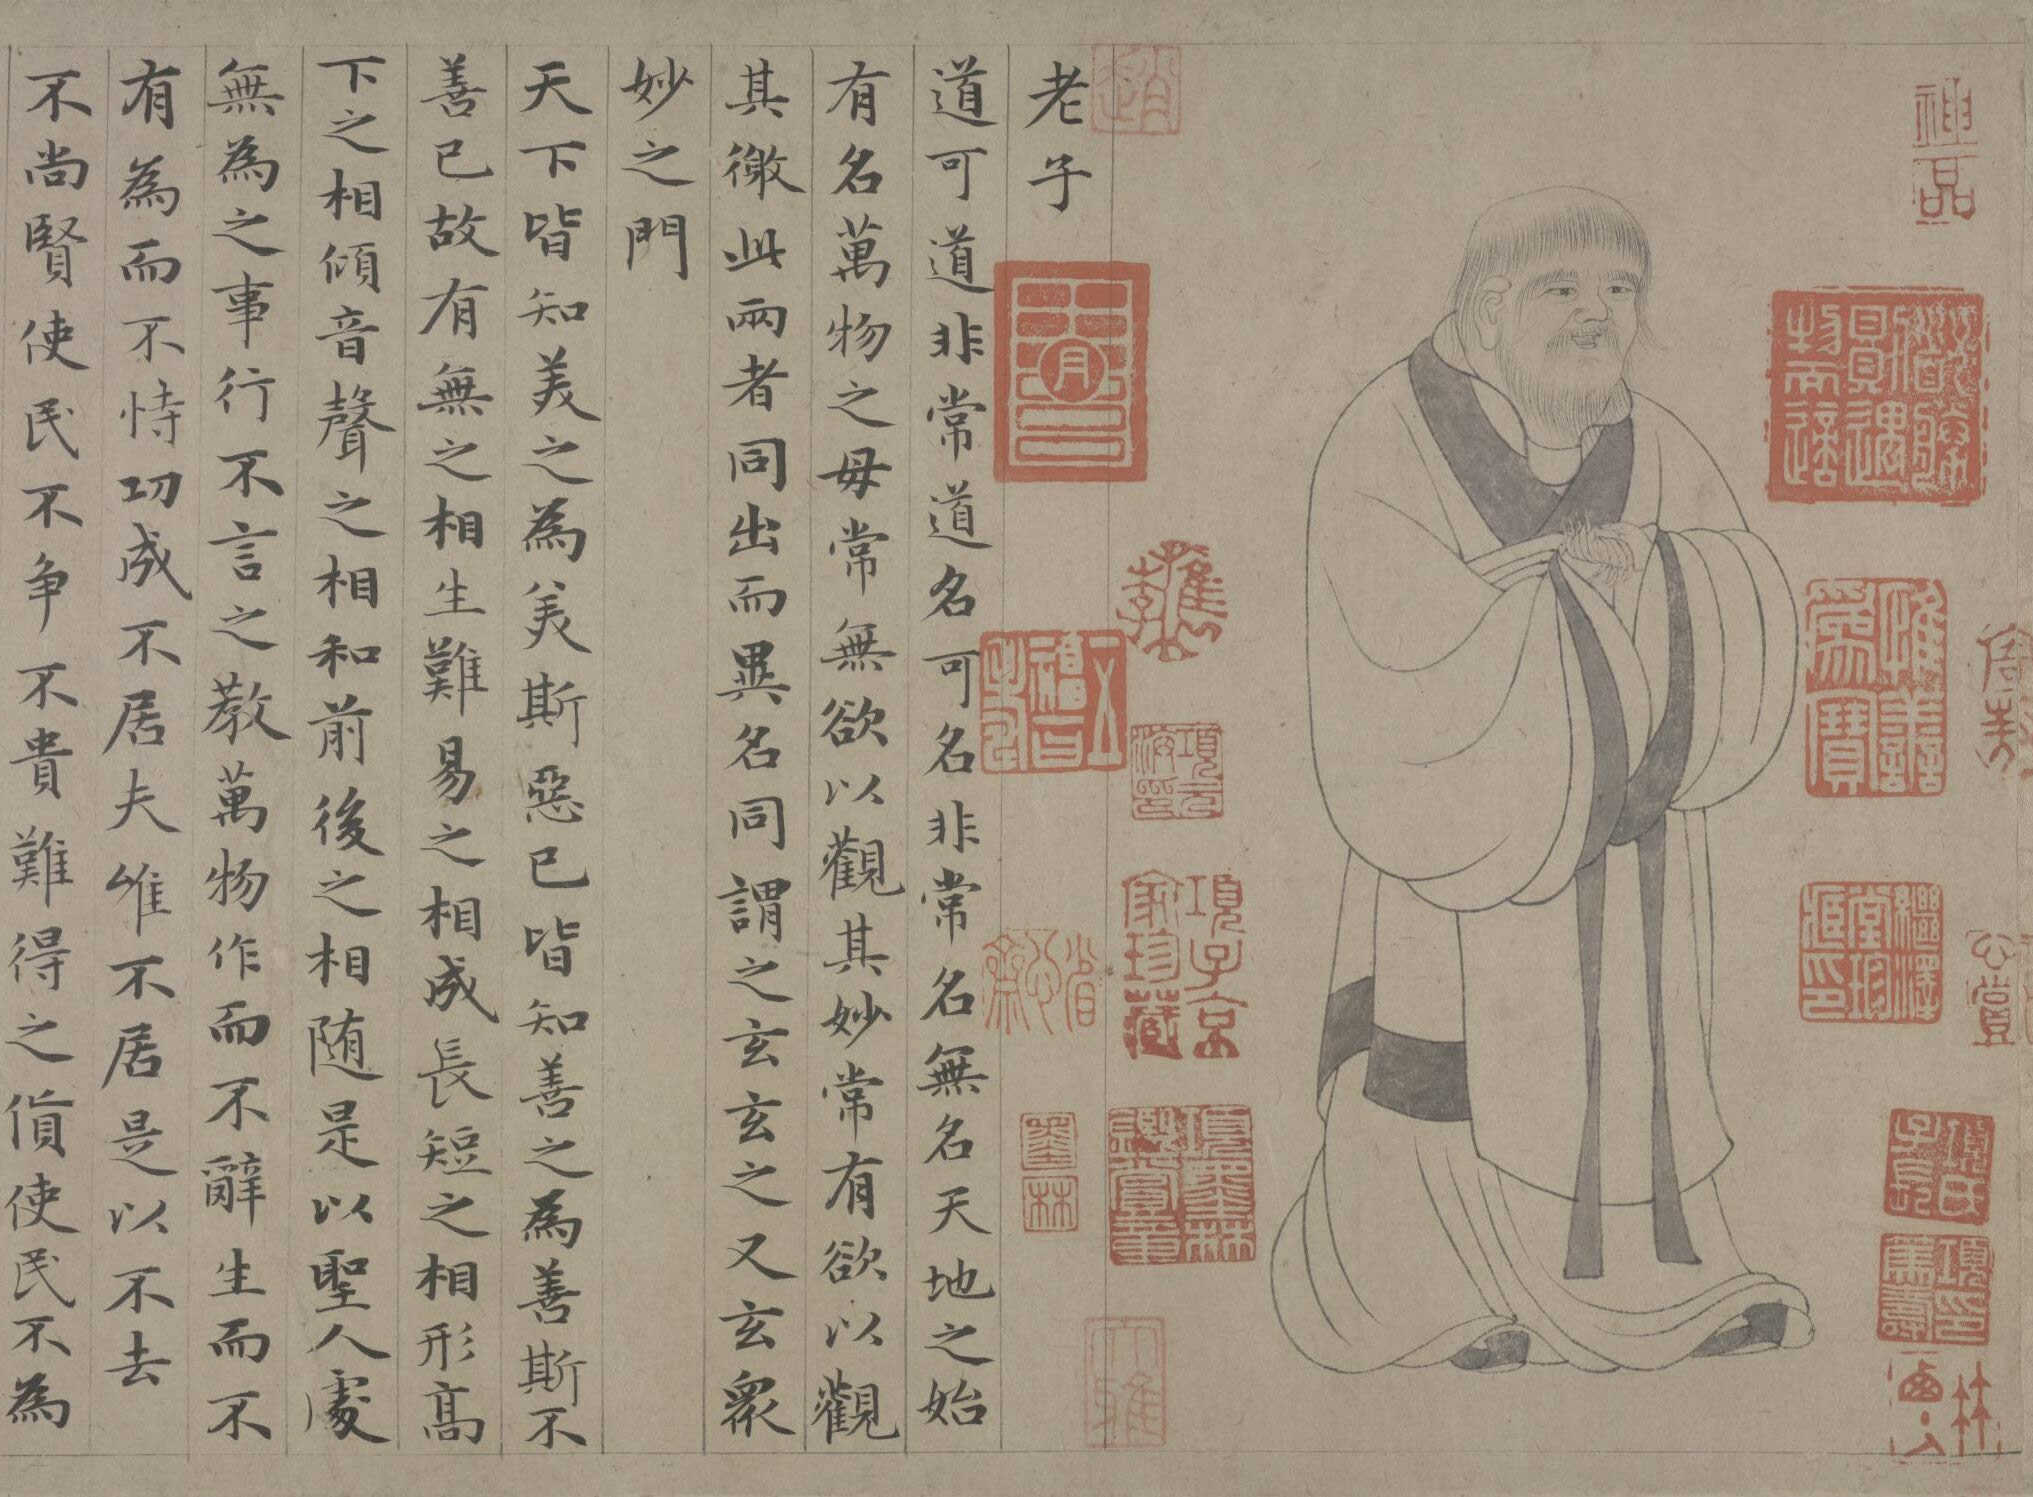 老子
道可道非常道名可名非常名無名天地之始
有名萬物之母常無欲以觀其妙常有欲以觀
其徼此兩者同出而異名同謂之玄玄之又玄衆
妙之門
天下皆知美之為美斯惡已皆知善之為善斯不
善已故有無之相生難易之相成長短之相形高
下之相傾音聲之相和前後之相随是以聖人處
無為之事行不言之教萬物作而不辭生而不
有為而不恃功成不居夫惟不居是以不去
不尚賢使民不争不貴難得之貨使民不為
神品
項子京
家珍藏
項墨林
鑑賞章
墨林
項元
汴印